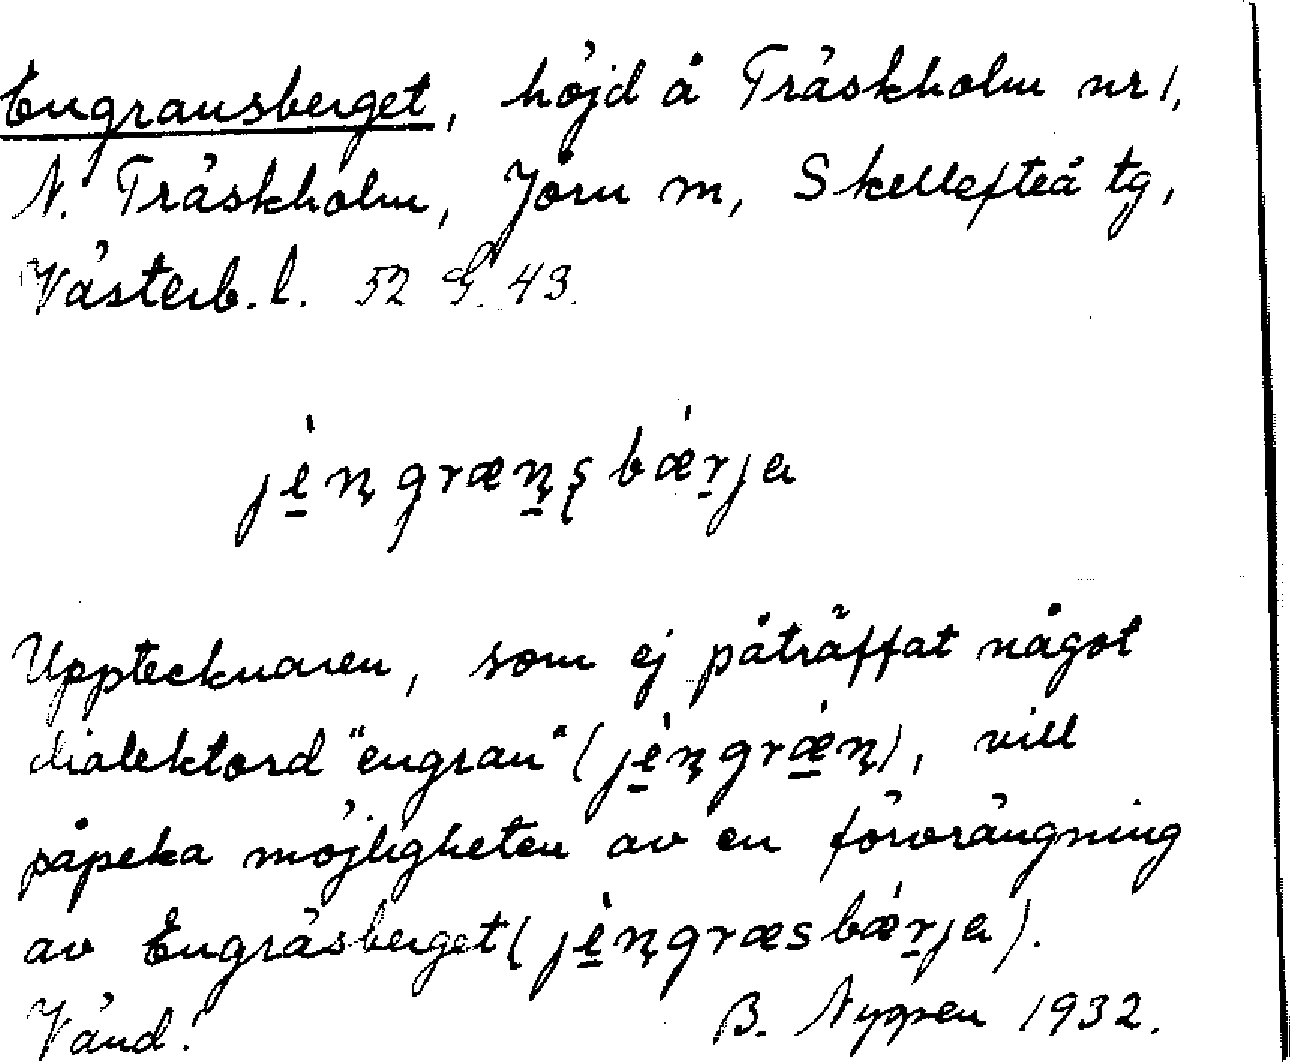 Engransberget, höjd å Träskholm nr 1,
N. Träskholm, Jörn m, Skellefteå tg,
Västerb. l. 52 G. 43.
jè̱n̡græṉ̡ʂbǽṟja
Upptecknaren, som ej påträffat något
dialektord "engran" (jè̱n̡grǽ̱n̡), vill
påpeka möjligheten av en förvrängning
av Engräsberget (jè̱n̡græsbǽṟja).
Vänd! B. Nygren 1932.